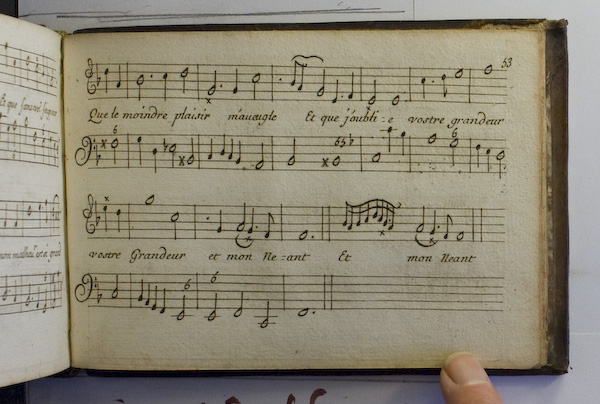 53
Que le moindre plaisir m'aveugle Et que j'oubli :e vostre grandeur
6 6 5 6
vostre Grandeur et mon Ne :ant Et mon Neant
6 6
Et que sans cet